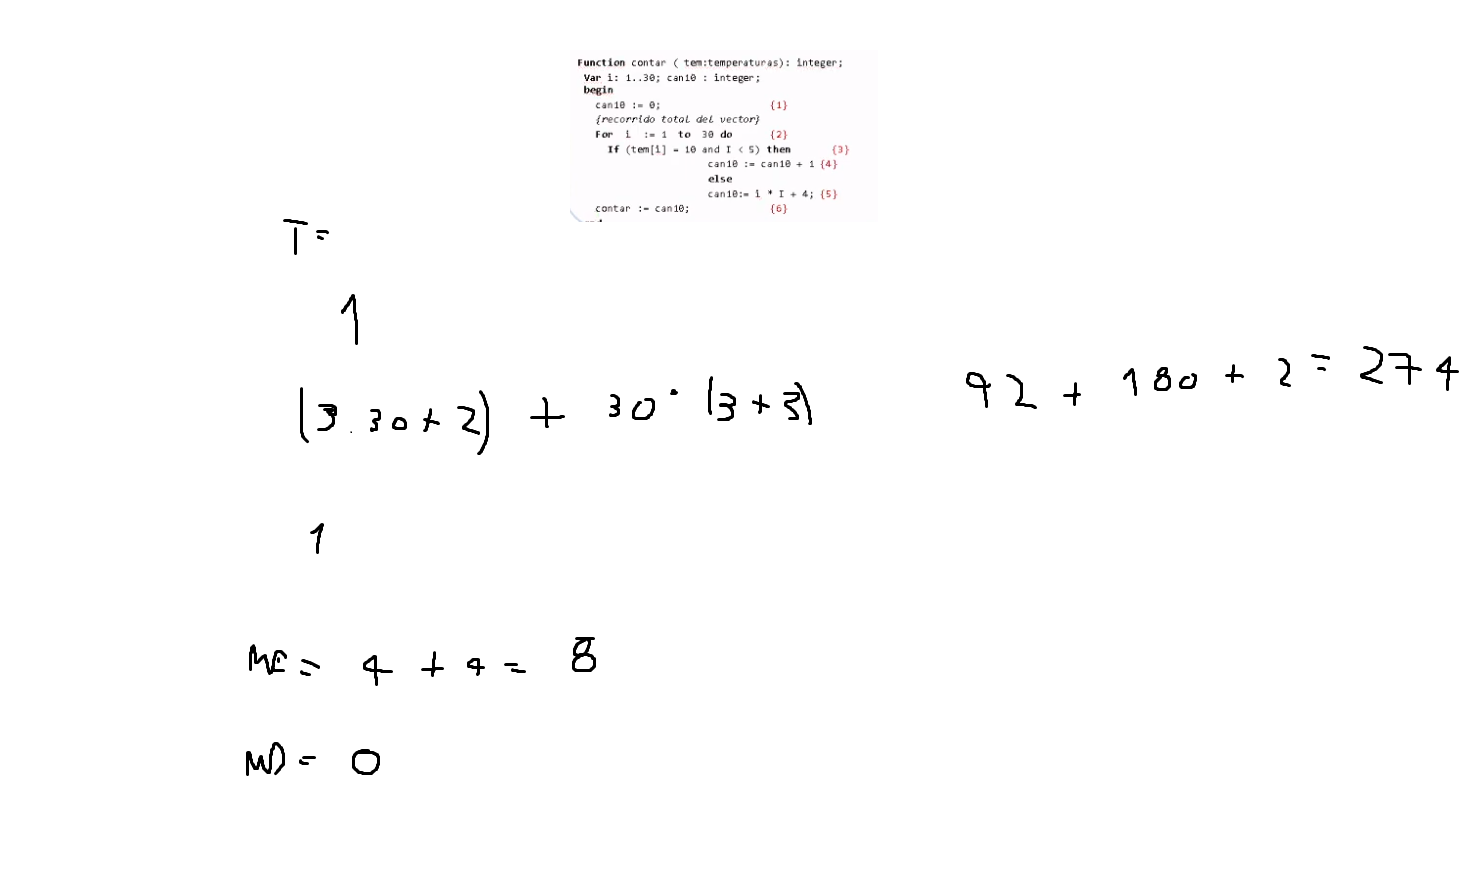 Function contar ( tem:temperaturas): integer;
Var i: 1..30; can10 : integer;
begin
can10 := 0; {1}
{recorrido total del vector}
For i := 1 to 30 do {2}
If (tem[i] = 10 and I < 5) then {3}
can10 := can10 + 1 {4}
else
can10:= i * I + 4; {5}
contar := can10; {6}
T =
1
(3.30+2) + 30·(3+3) 92 + 180 + 2 = 274
1
ME = 4 + 4 = 8
MD = 0